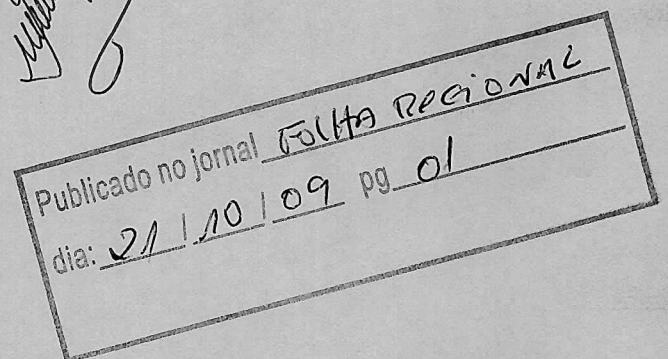 Publicado no jornal FOLHA REGIONAL
dia: 21 / 10 / 09 pg 01